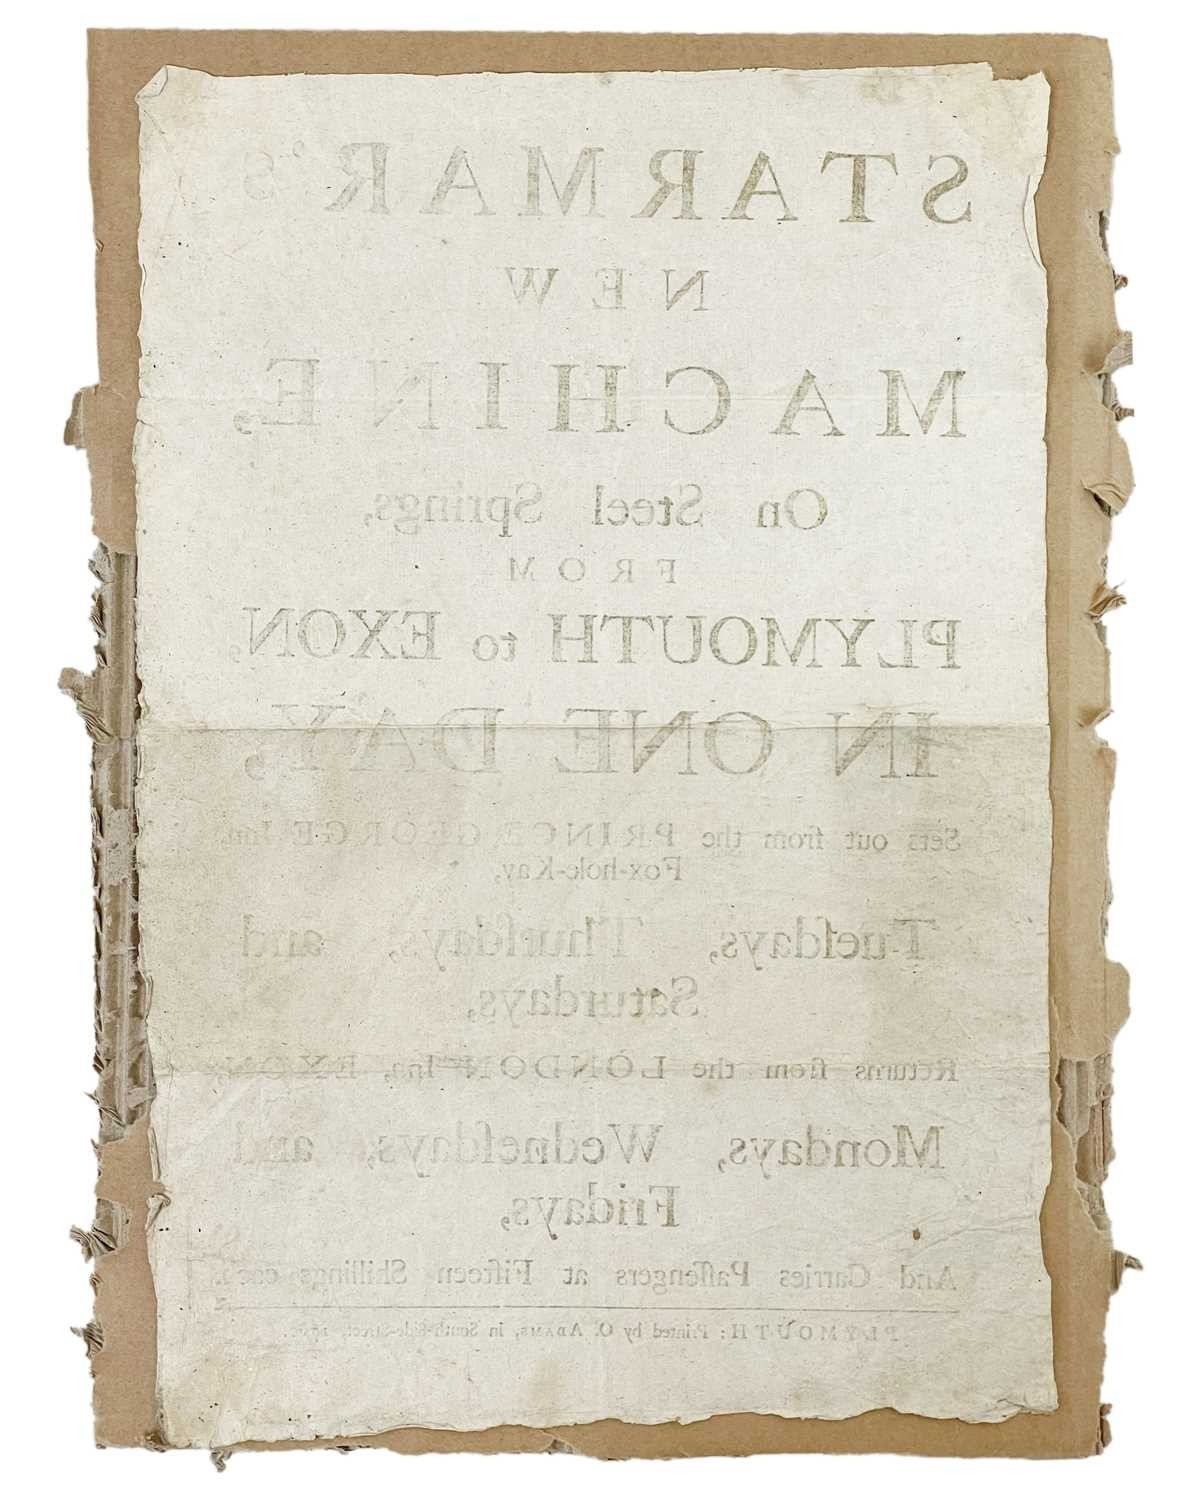 STARMAR's
NEW
MACHINE,
On Steel Springs,
FROM
PLYMOUTH to EXON,
IN ONE DAY,
Sets out from the PRINCE GEORGE Inn
Fox-hole-Kay,
Tueſdays, Thurſdays, and
Saturdays,
Returns from the LONDON Inn, EXON,
Mondays, Wedneſdays, and
Fridays,
And Carries Paſſengers at Fifteen Shillings each.
PLYMOUTH: Printed by O. ADAMS, in South-Side-Street,